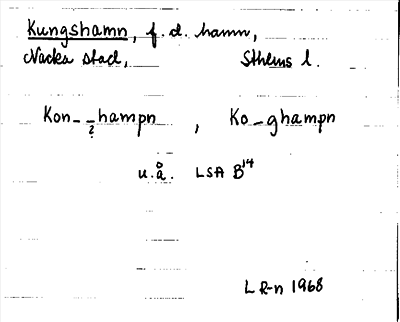 Kungshamn, f. d. hamn,
Nacka stad, Sthlms l.
Kon--hampn , Ko-ghampn
?
u.å. LSA B14
L R-n 1968